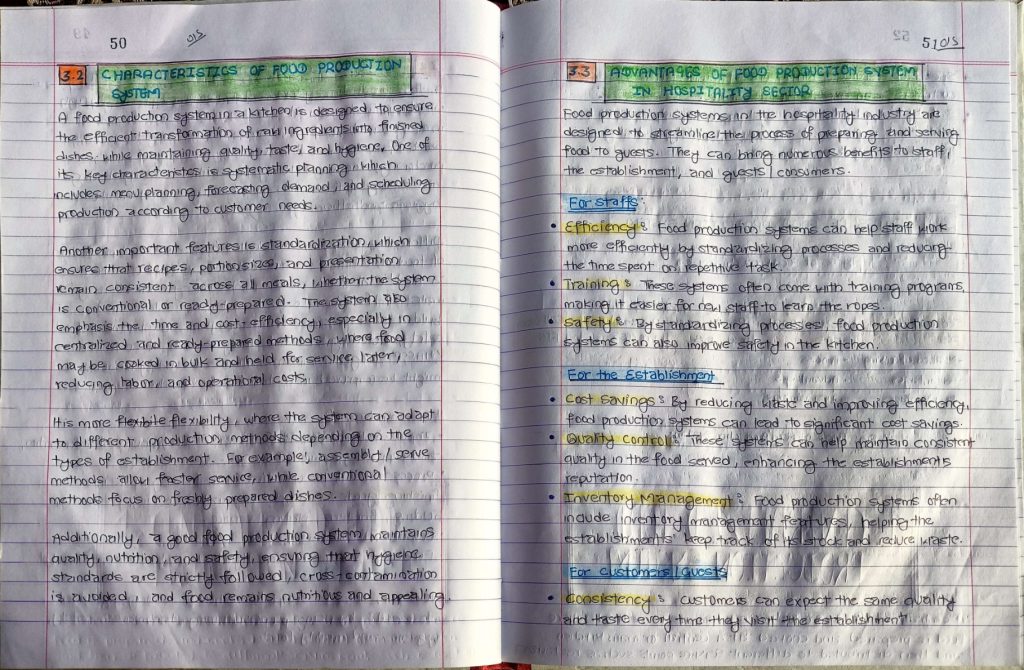 50
3.2 CHARACTERISTICS OF FOOD PRODUCTION
SYSTEM
A food production system in a kitchen is designed to ensure
the efficient transformation of raw ingredients into finished
dishes while maintaining quality, taste, and hygiene. One of
its key characteristics is systematic planning, which
includes menu planning, forecasting demand, and scheduling
production according to customer needs.
Another important features is standardization, which
ensures that recipes, portion sizes, and presentation
remain consistent across all meals, whether the system
is conventional or ready-prepared. The system also
emphasis the time and cost-efficiency, especially in
centralized and ready-prepared methods, where food
may be cooked in bulk and held for service later,
reducing labor and operational costs.
His more flexibile flexibility, where the system can adapt
to different production methods depending on the
types of establishment. For example, assembly/serve
methods allow faster service, while conventional
methods focus on freshly prepared dishes.
Additionally, a good food production system maintains
quality, nutrition, and safety, ensuring that hygiene
standards are strictly followed, cross-contamination
is avoided, and food remains nutritious and appealing.
51
3.3 ADVANTAGES OF FOOD PRODUCTION SYSTEM
IN HOSPITALITY SECTOR
Food production systems in the hospitality industry are
designed to streamline the process of preparing and serving
food to guests. They can bring numerous benefits to staff,
the establishment, and guests/consumers.
For staffs:
• Efficiency: Food production systems can help staff work
more efficiently by standardizing processes and reducing
the time spent on repetitive task.
• Training: These systems often come with training programs,
making it easier for new staff to learn the ropes.
• Safety: By standardizing processes, food production
systems can also improve safety in the kitchen.
For the Establishment
• Cost Savings: By reducing waste and improving efficiency,
food production systems can lead to significant cost savings.
• Quality Control: These systems can help maintain consistent
quality in the food served, enhancing the establishments
reputation.
• Inventory Management: Food production systems often
include inventory management features, helping the
establishments' keep track of its stock and reduce waste.
For customers/Guests
• Consistency: Customers can expect the same quality
and taste every time they visit the establishment.